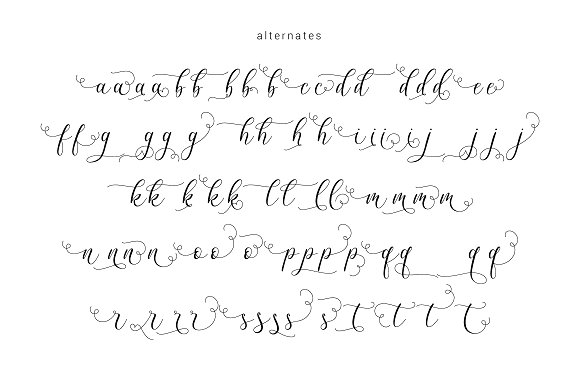 alternates
a a a a b b b b b c c d d d d d e e
f f g g g g h h h h i i i j j j j
k k k k k l l l l m m m m
n n n n o o o p p p p q q q q
r r r r s s s s s t t t t